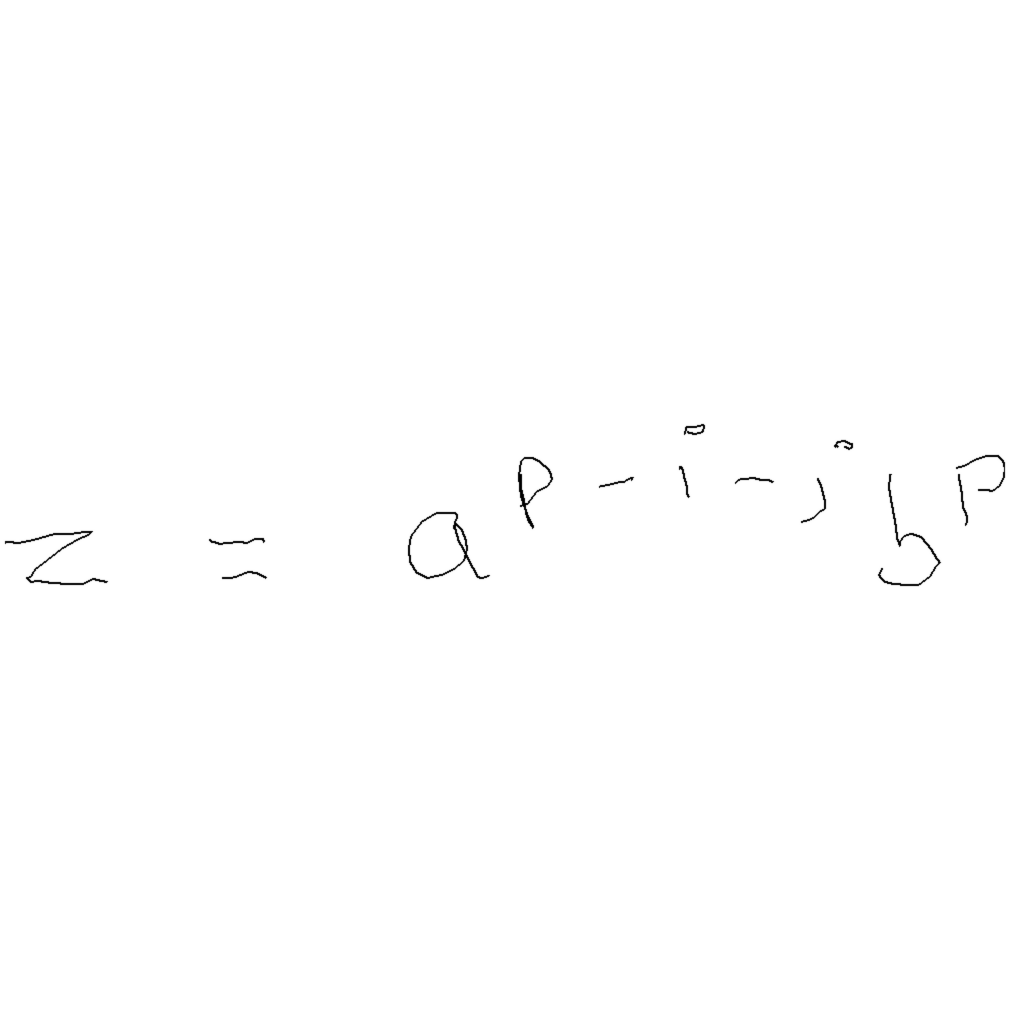 z = a^{p-i-j} b^p